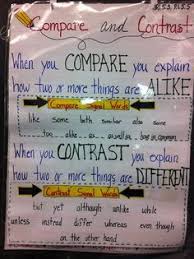 Compare and Contrast
When you COMPARE you explain
how two or more things are ALIKE
Compare Signal Words
like some both similar also same
too alike as as well as have in common
When you CONTRAST you explain
how two or more things are DIFFERENT
Contrast Signal Words
but yet although unlike while
unless instead differ whereas even though
on the other hand